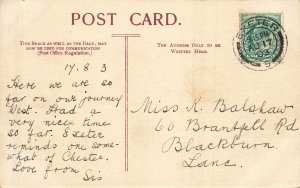 POST CARD.
THIS SPACE AS WELL AS THE BACK, MAY
NOW BE USED FOR COMMUNICATION
(Post Office Regulation.)
THE ADDRESS ONLY TO BE
WRITTEN HERE.
EXETER
17
17.8.3
Here we are so
far on our journey
West. Had a
very nice time
so far. Exeter
reminds one some-
what of Chester.
Love from
Sis
Miss N. Balshaw
60 Brantfell Rd
Blackburn
Lanc.